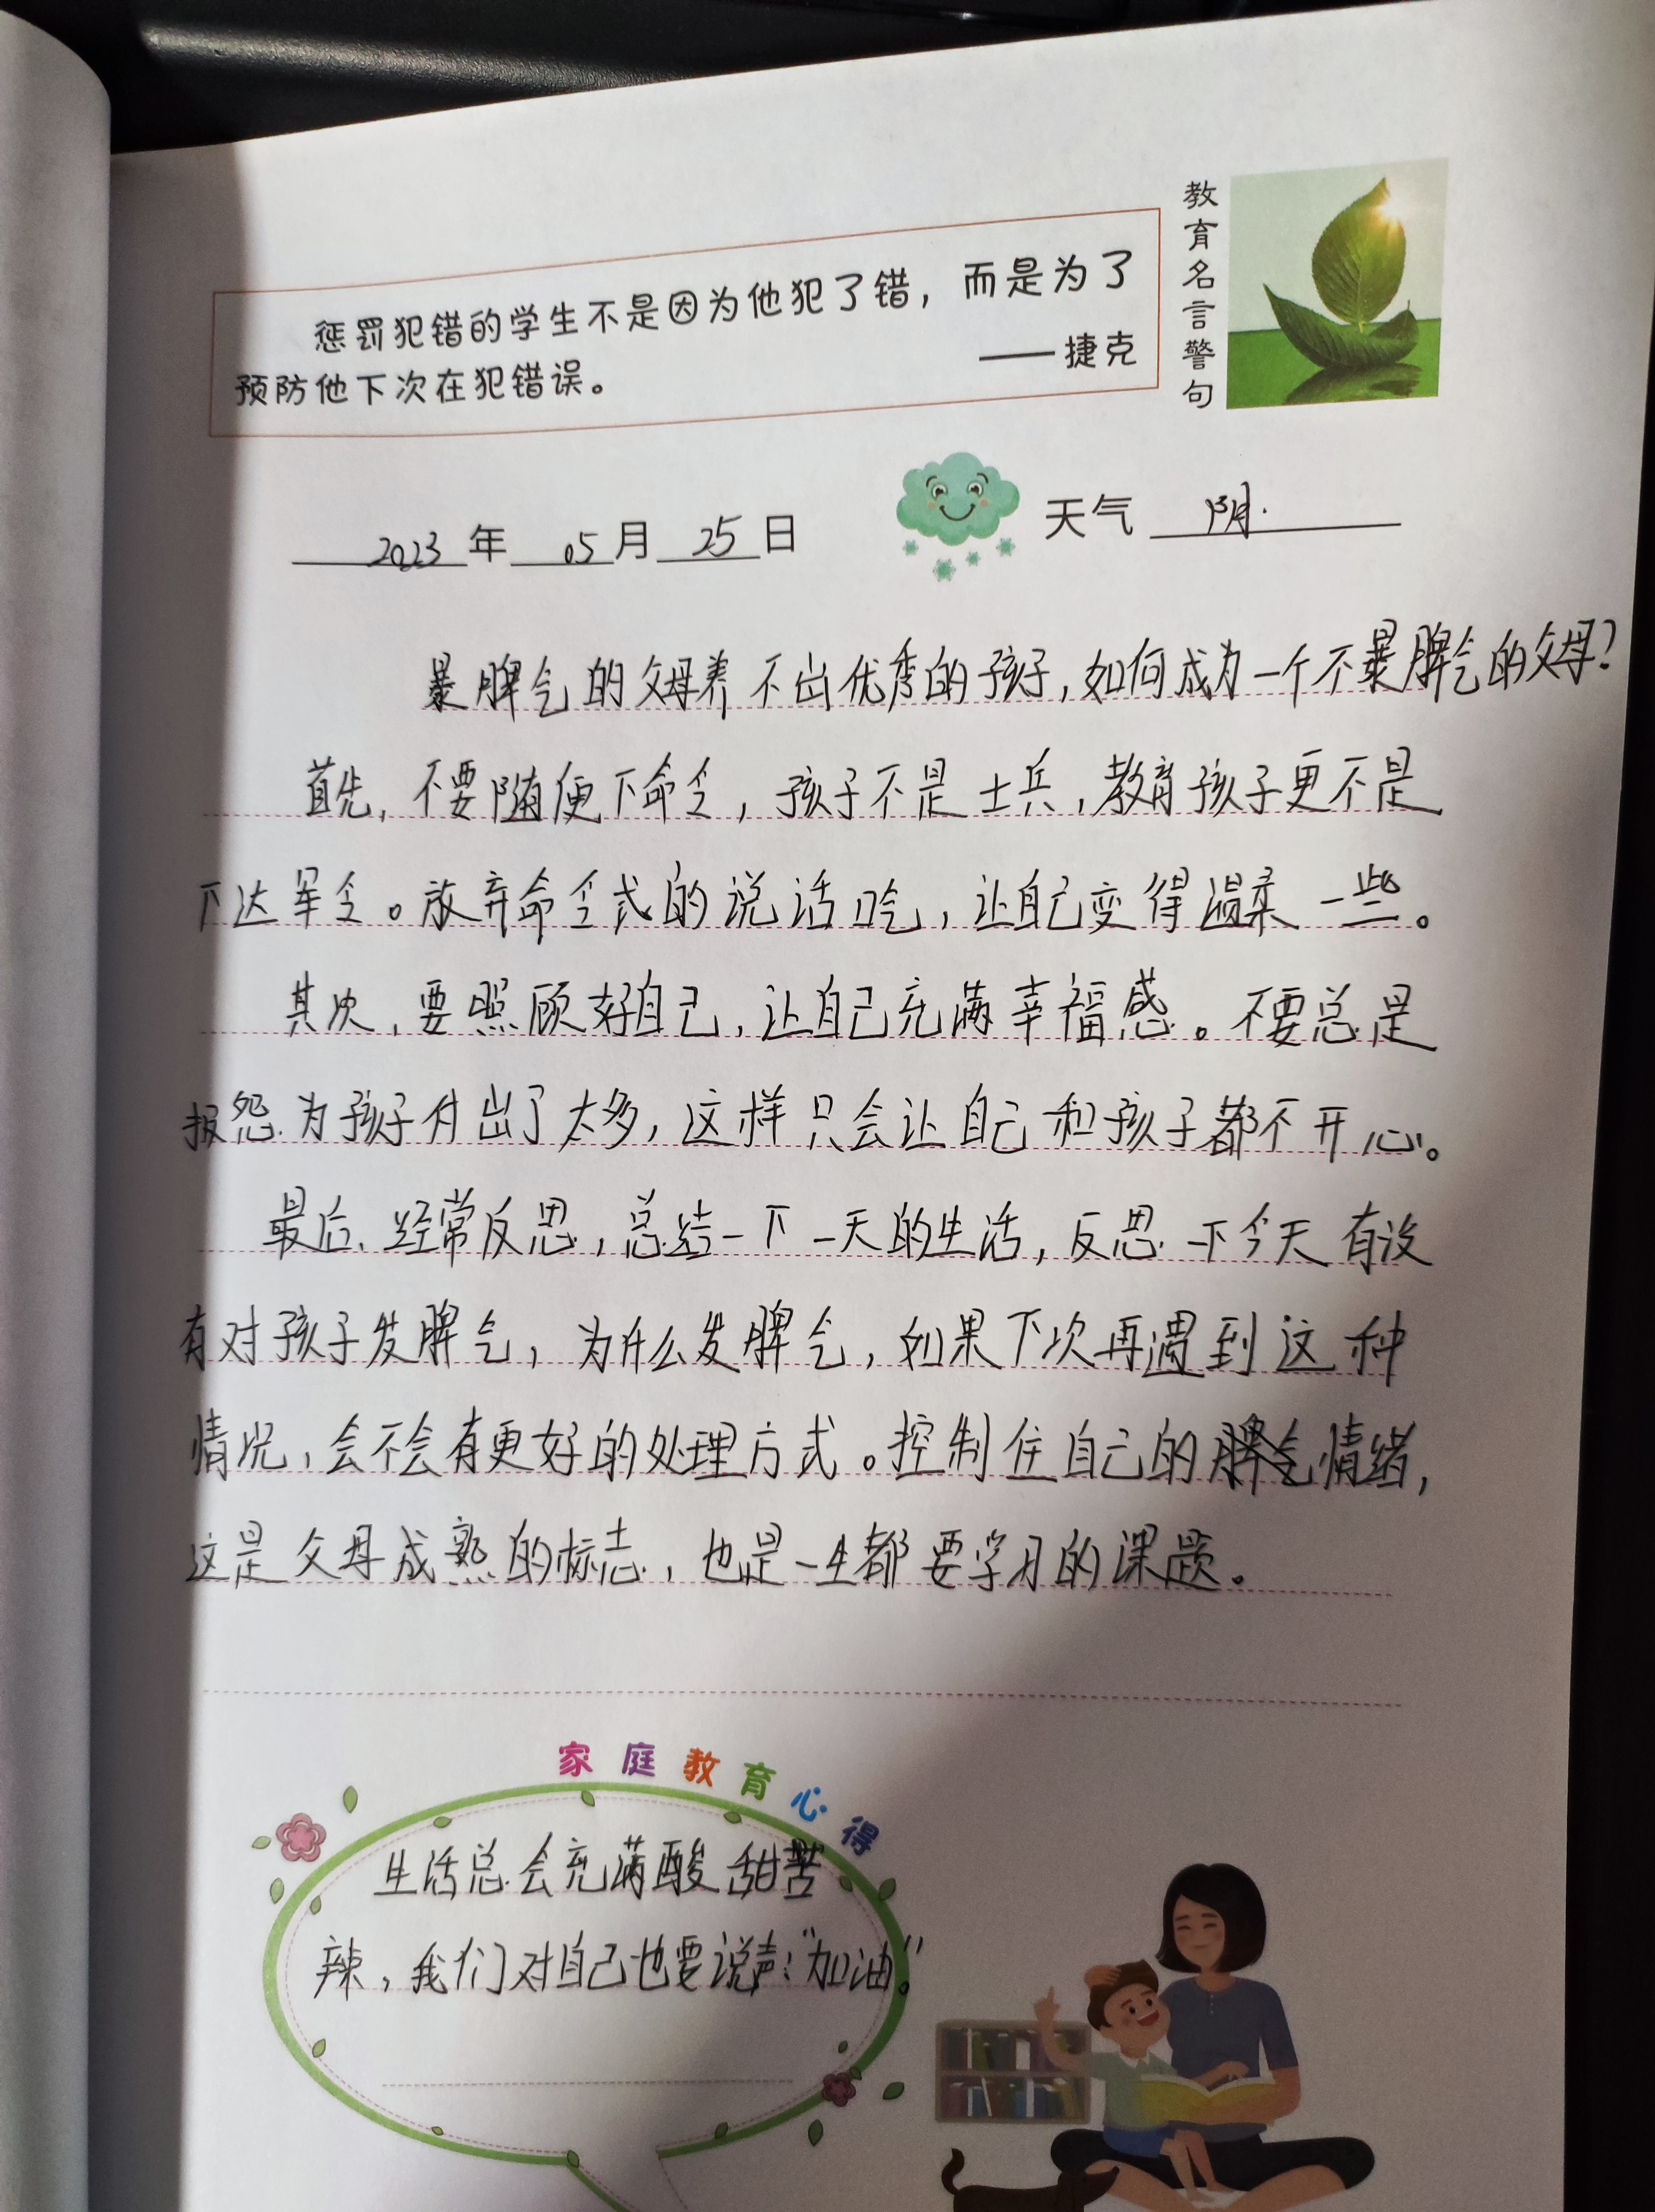 教育名言警句
惩罚犯错的学生不是因为他犯了错，而是为了
预防他下次在犯错误。 ——捷克
2023年05月25日 天气 阴.
暴脾气的父母养不出优秀的孩子，如何成为一个不暴脾气的父母？
首先，不要随便下命令，孩子不是士兵，教育孩子更不是
下达军令。放弃命令式的说话口吃，让自己变得温柔一些。
其次，要照顾好自己，让自己充满幸福感。不要总是
报怨为孩子付出了太多，这样只会让自己和孩子都不开心。
最后、经常反思，总结一下一天的生活，反思一下今天有没
有对孩子发脾气，为什么发脾气，如果下次再遇到这种
情况，会不会有更好的处理方式。控制住自己的情绪，
这是父母成熟的标志，也是一生都要学习的课题。
家庭教育心得
生活总会充满酸甜苦
辣，我们对自己也要说声：“加油”。